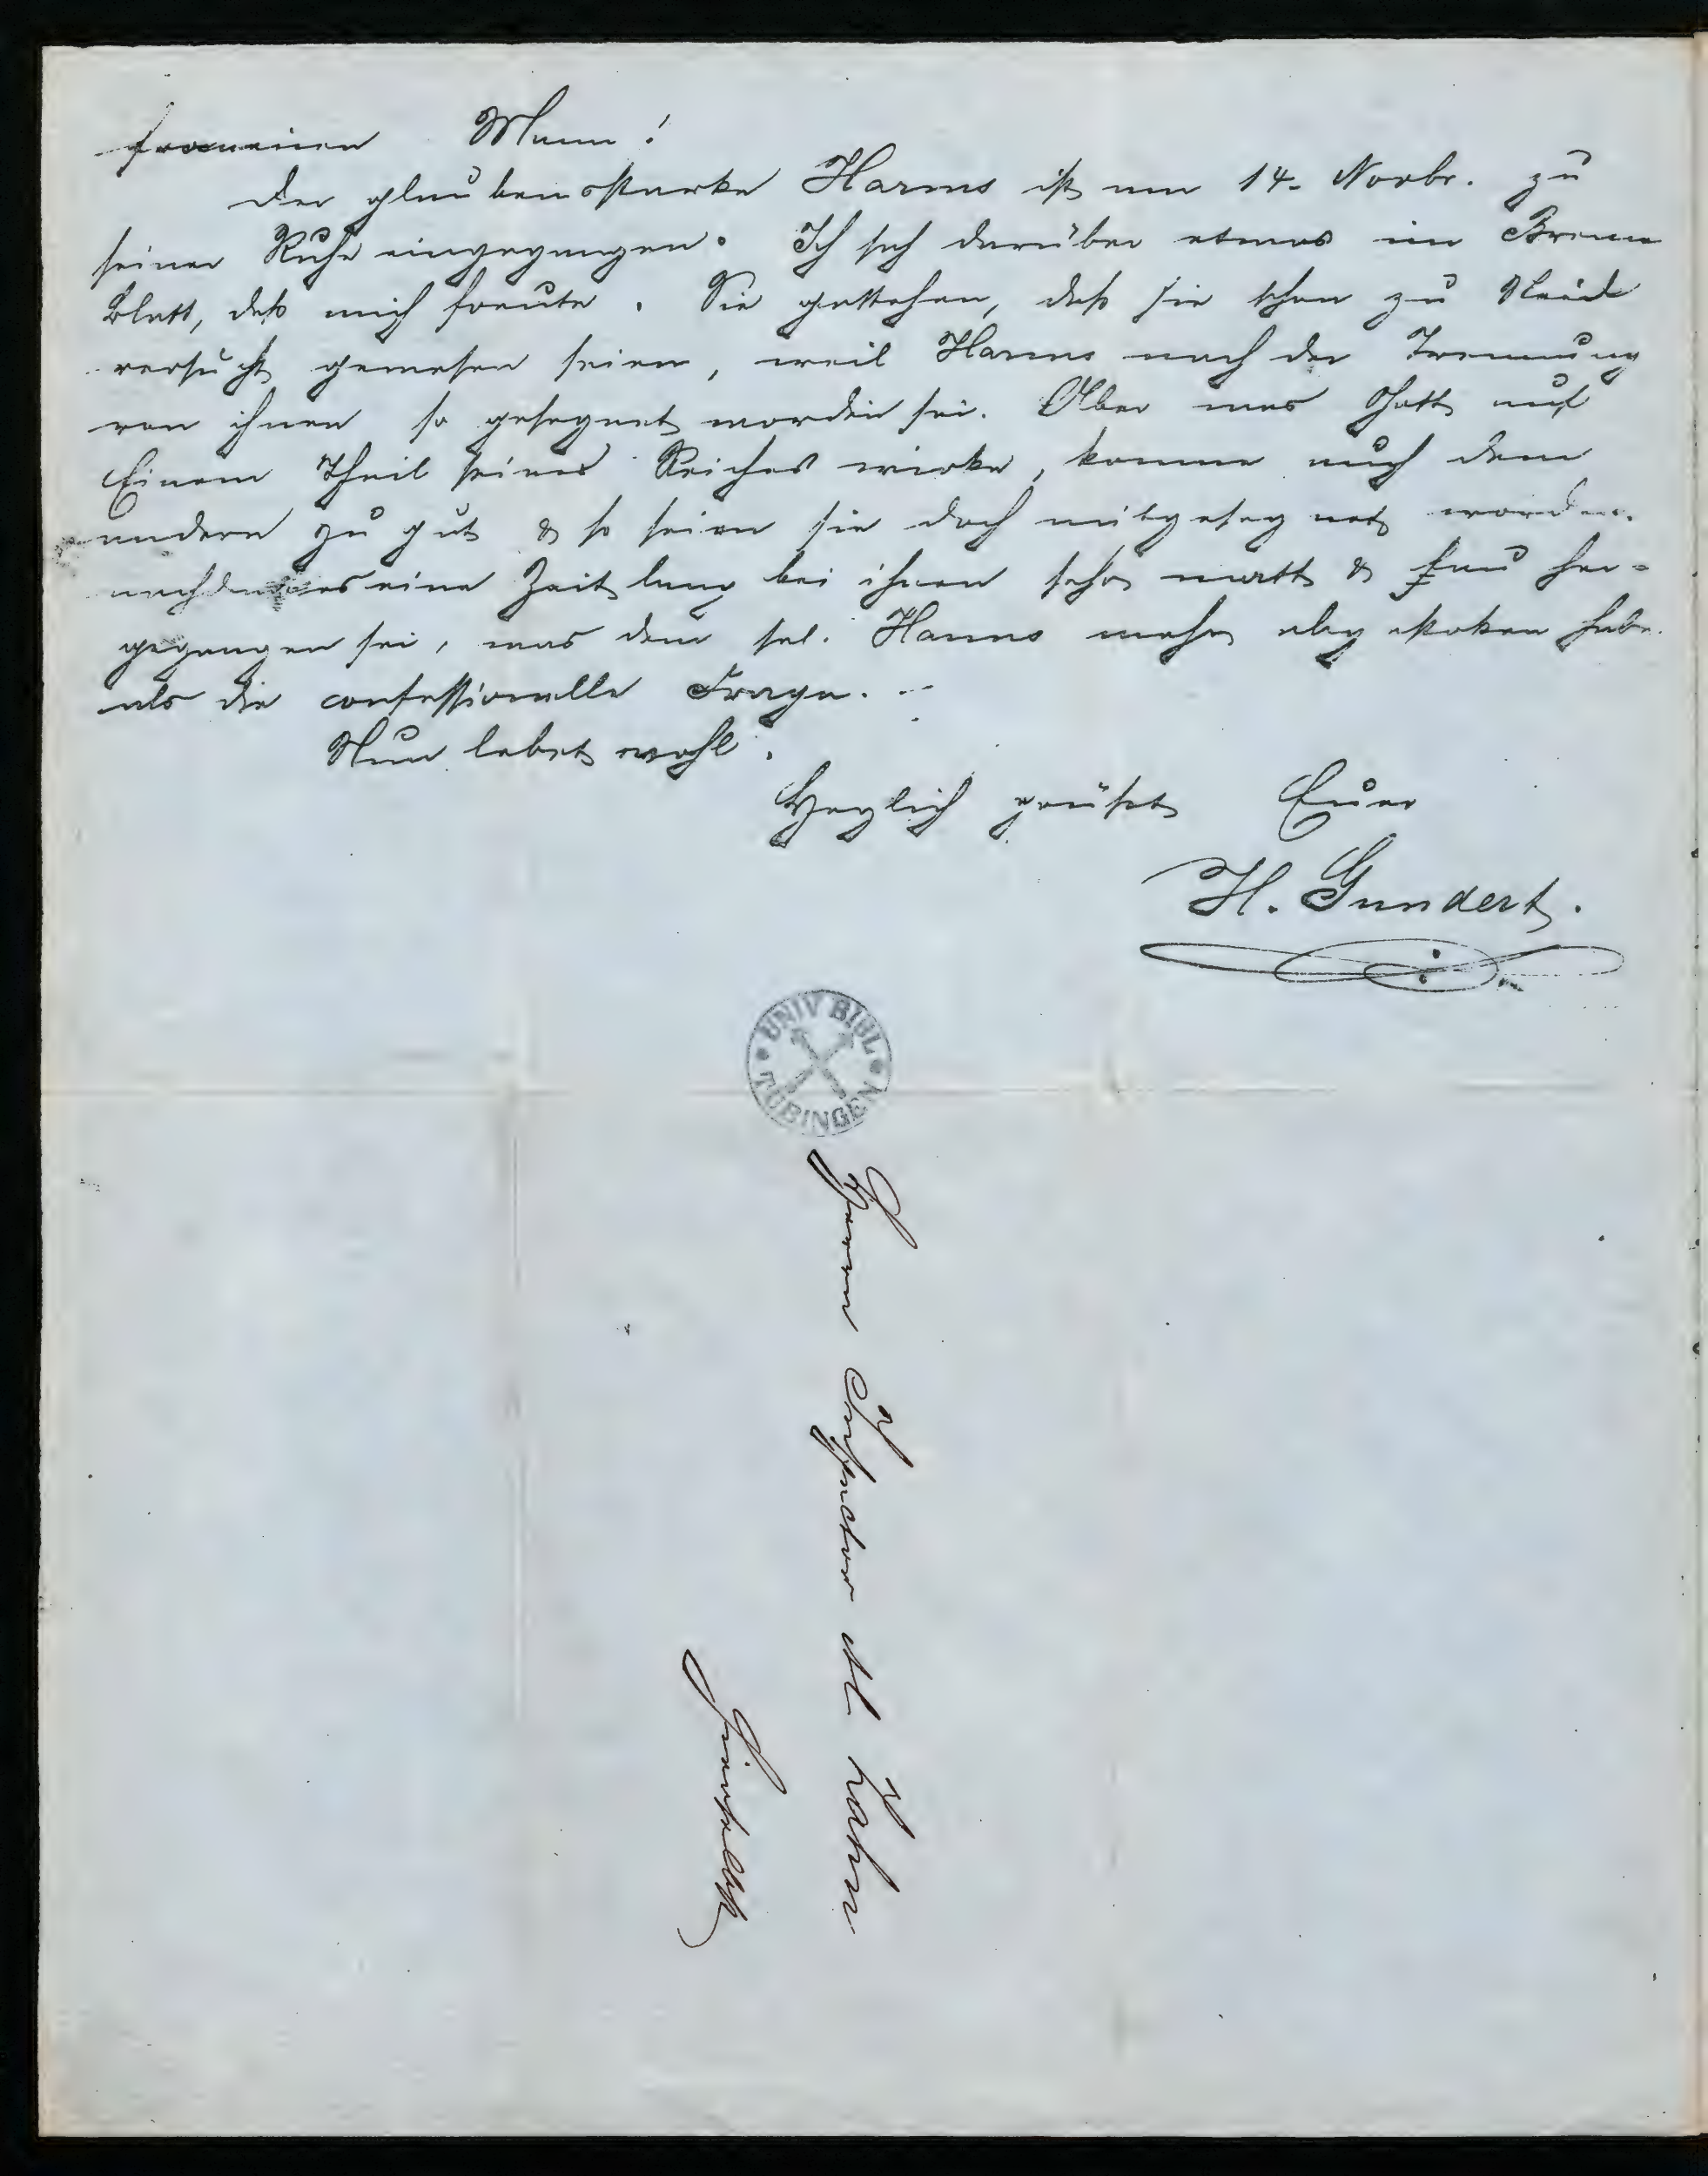 Mann!
der glaubensstarke Harms ist am 14. Novbr. zu
seiner Ruhe eingegangen. Ich sah darüber etwas im Brem
blatt, daß mich freute. Sie gestehen, daß sie schon zu Neid
versucht gewesen seien, weil Harms nach der Trennung
von ihnen so gesegnet worden sei. Aber was Gott auf
Einem Theil seines Reiches wirke, komme auch dem
andern zu gut & so seien sie doch mitgesegnet worden.
nachdem es eine Zeit lang bei ihnen sehr matt & flau her=
gegangen sei, was den sel. Harms mehr abgestoßen habe
als die confessionelle Frage.
Nun lebet wohl.
Herzlich grüßet Euer
H. Gundert.
UNIV BIBL
TÜBINGEN
Herrn Inspector Zahn